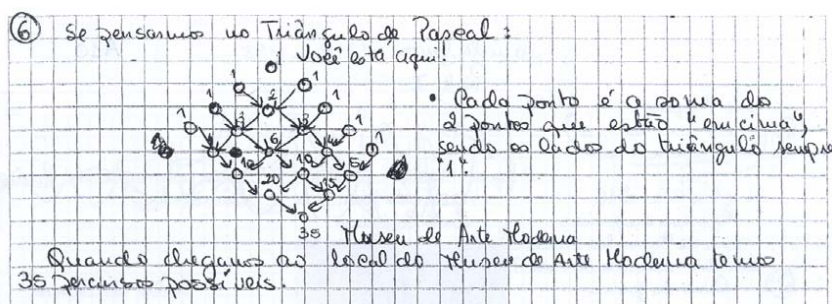 6 Se pensarmos no Triângulo de Pascal:
Você está aqui!
1
1 1
1 2 1
1 3 3 1
6 4 1
10 10 5
20 15
35 Museu de Arte Moderna
• Cada ponto é a soma do
2 pontos que estão "em cima",
sendo os lados do triângulo sempre
"1".
Quando chegamos ao local do Museu de Arte Moderna temos
35 percursos possíveis.